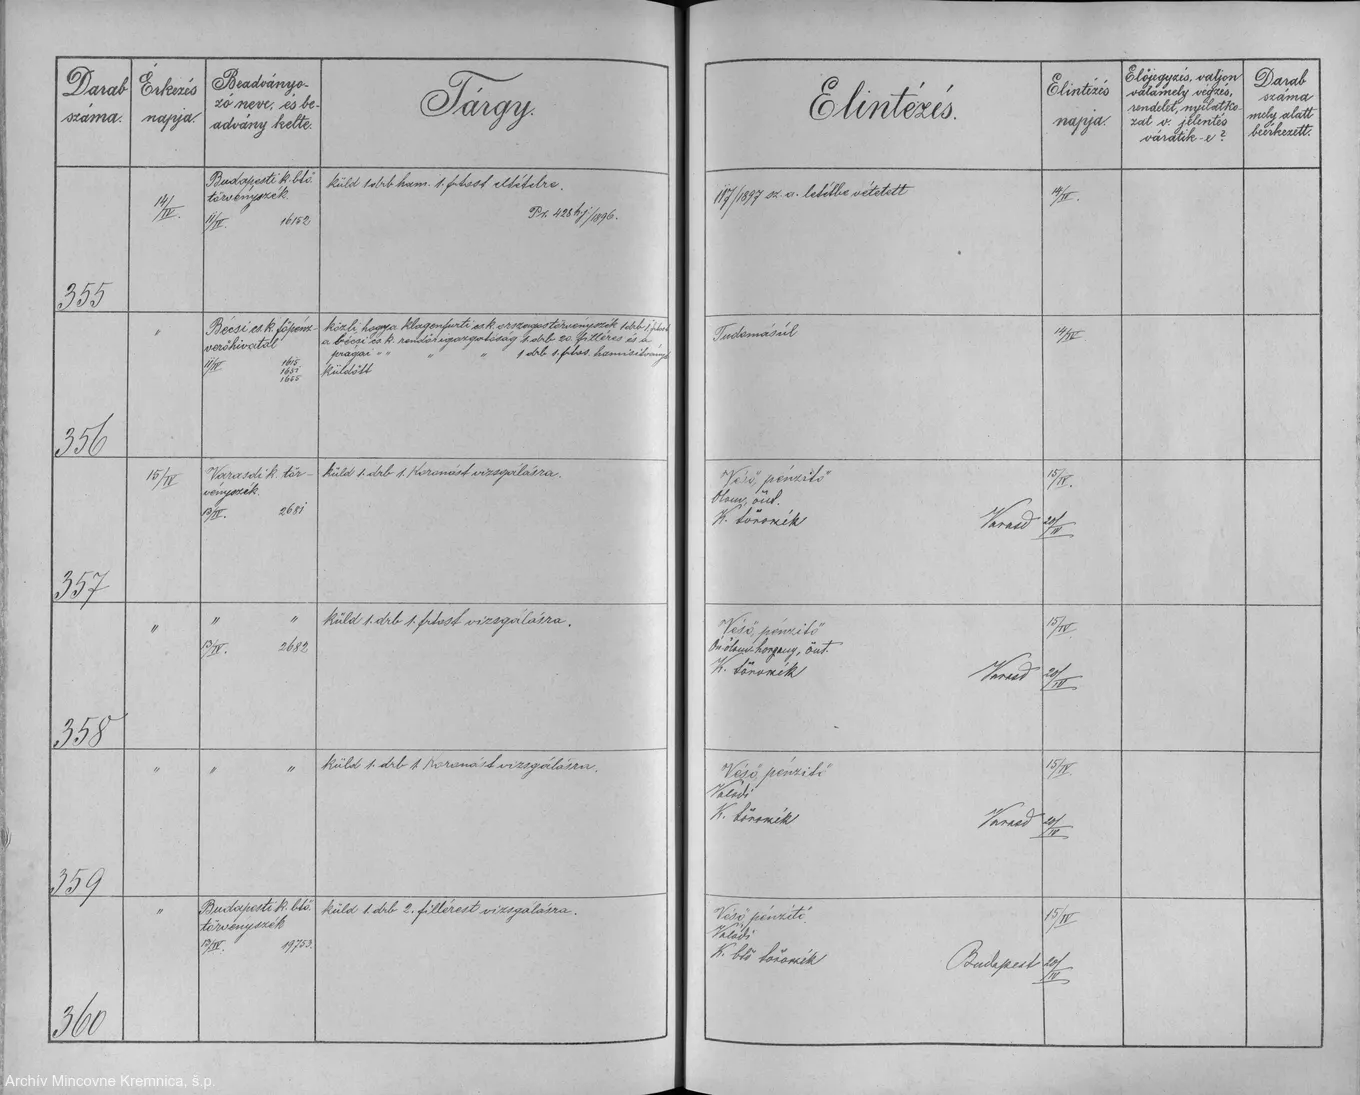 Darab száma.
Érkezés napja.
Beadványo-
zó neve, és be-
advány kelte.
Tárgy.
Elintézés.
Elintézés napja.
Előjegyzés, valjon
valamely végzés,
rendelet, nyilatko-
zat v. jelentés
váratik-e?
Darab
száma
mely alatt
beérkezett.
355
14/IV.
Budapesti k. btő
törvényszék.
11/IV. 16152
küld 1 drb ham. 1. frtost eltételre.
Pr. 428 hj/1896.
117/1897 sz. a. letétbe vétetett
14/IV.
356
"
Bécsi cs. k. főpénz-
verőhivatal
11/IV 1615
1651
1655
közli hogy a klagenfurti cs. k. országos törvényszék 1 drb 1 frtost
a bécsi cs. k. rendőrigazgatóság 1. drb 20. filléres és a
prágai " " " " 1 drb 1. frtos. hamisítványt
küldött
Tudomásúl
14/IV
357
15/IV
Varasdi k. tör-
vényszék.
13/IV. 2681
küld 1. drb 1. Koronást vizsgálásra.
Véső, pénzitő
Ólom, önt.
K. törvszék Varasd
15/IV.
20/IV
358
"
" "
13/IV. 2682
küld 1. drb 1. frtost vizsgálásra.
Véső, pénzitő
Ón ólom horgany, önt.
K. törvszék Varasd
15/IV.
20/IV
359
"
" "
küld 1. drb 1 Koronást vizsgálásra.
Véső, pénzitő
Valódi
K. törvszék Varasd
15/IV.
20/IV
360
"
Budapesti k. btő.
törvényszék
13/IV. 19753.
küld 1. drb 2. fillérest vizsgálásra.
Véső, pénzitő
Valódi
K. btő törvszék Budapest
15/IV
20/IV
Archív Mincovne Kremnica, š.p.